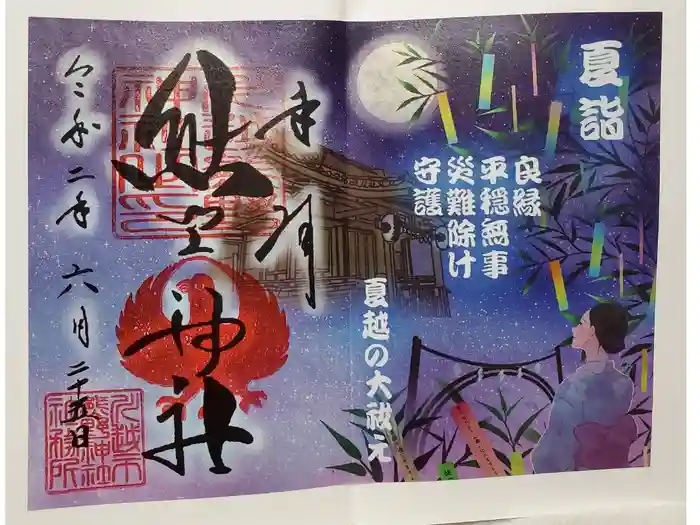 夏詣
良縁
平穏無事
災難除け
守護
夏越の大祓え
奉拝
熊野神社
令和二年六月二十五日
川越市
熊野神社
社務所